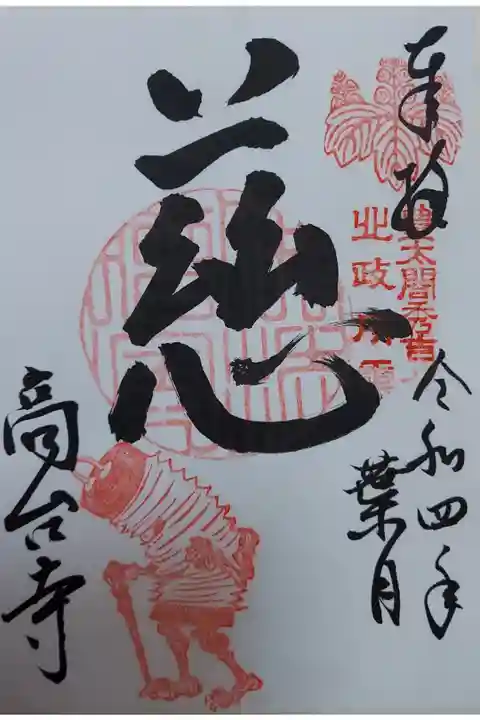 奉拝
豊太閤秀吉
北政所霊
令和四年
葉月
慈
高台寺